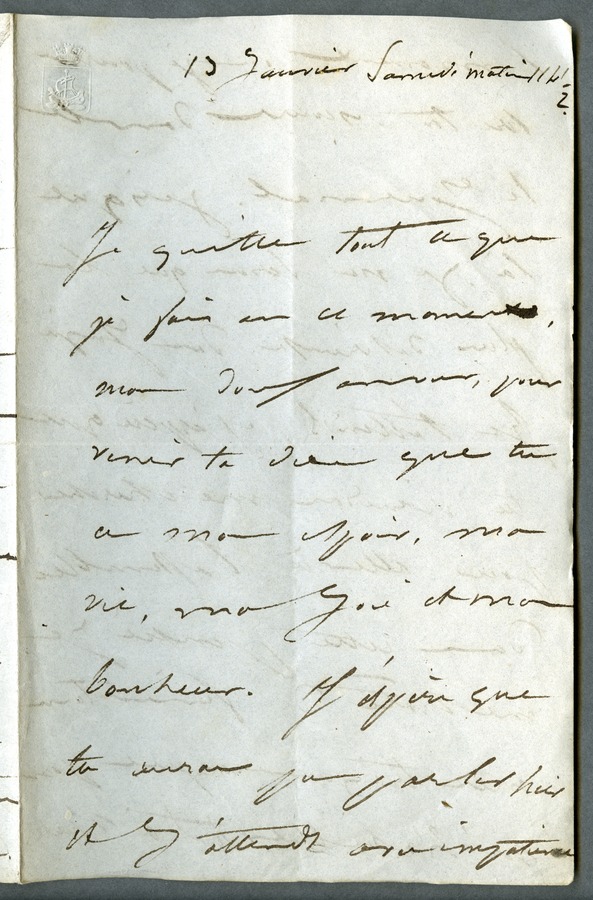 13 Janvier Samedi matin 11h ½
Je quitte tout ce que
je fais en ce moment,
mon doux amour, pour
venir te dire que tu
es mon espoir, ma
vie, ma Joie et mon
bonheur. J'espère que
tu auras pu parler hier
et J'attends avec impatience